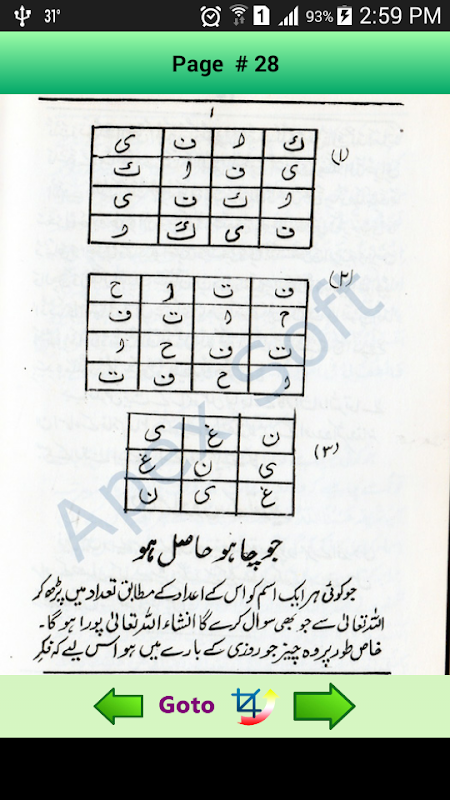 31° 1 93% 2:59 PM
Page # 28
۱
(۱)
ك ا ف ی
ی ف ا ك
ا ك ف ی
ف ی ك ا
(۲)
ف ت ا ح
ح ا ت ف
ت ف ح ا
ا ح ف ت
(۳)
ن غ ی
ی ن غ
غ ی ن
جو چاہو حاصل ہو
جو کوئی ہر ایک اسم کو اس کے اعداد کے مطابق تعداد میں پڑھ کر
اللہ تعالیٰ سے جو بھی سوال کرے گا انشاء اللہ تعالیٰ پورا ہو گا۔
خاص طور پر وہ چیز جو روزی کے بارے میں ہو اس لیے کہ فکر
Apex Soft
Goto